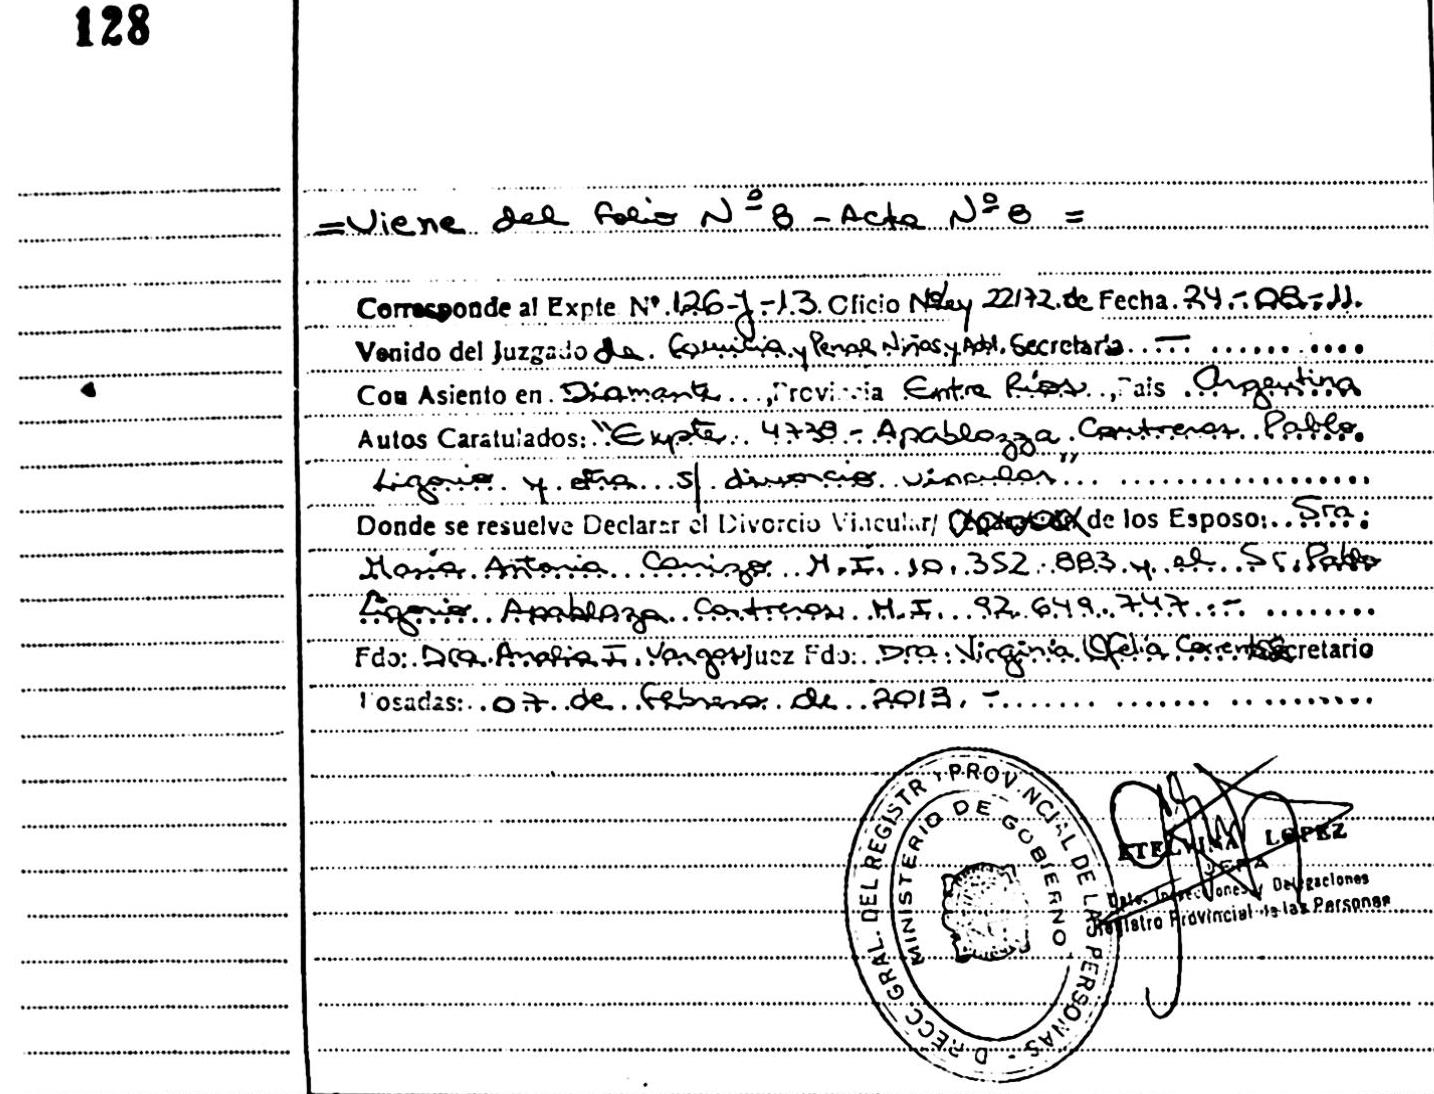 128
=Viene del folio Nº 8 - Acta Nº 8 =
Corresponde al Expte Nº. 126-J-13. Oficio Ley 22172 de Fecha. 24-08-11.
Venido del Juzgado de Familia y Penal Niños y Adl. Secretaría..—
Con Asiento en Diamante..., Provincia Entre Ríos.., País Argentina
Autos Caratulados: "Expte 4738 - Apablazza Contreras Pablo
Ligorio y otra s/ divorcio vincular"
Donde se resuelve Declarar el Divorcio Vincular/ de los Esposo: Sra:
María Antonia M.I. 10.352.883 y el Sr. Pablo
Ligorio Apablaza Contreras M.I. 92.649.747.-
Fdo: Dra. Analia I. Vargas Juez Fdo: Dra. Virginia Ofelia Correnti Secretario
Posadas: 07 de Febrero de 2013.-
DIRECC. GRAL. DEL REGISTR PROVINCIAL DE LAS PERSONAS -
MINISTERIO DE GOBIERNO
ETELVINA LOPEZ
JEFA
Dpto. Inspecciones y Delegaciones
Registro Provincial de las Personas